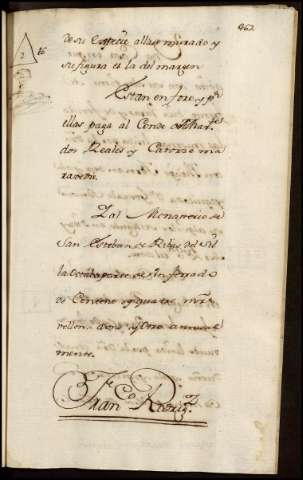 462
2
de su Especie allase murado y
su figura es la del margen
Estan en foro y por
ellas paga al Conde de
dos Reales y Catorze ma
ravedis.
Y al Monasterio de
San Esteban de Ribas del Sil
la Octaba parte de un ferrado
de Centeno y quatro mrs
vellon a uno y otro annual
mente.
Juan